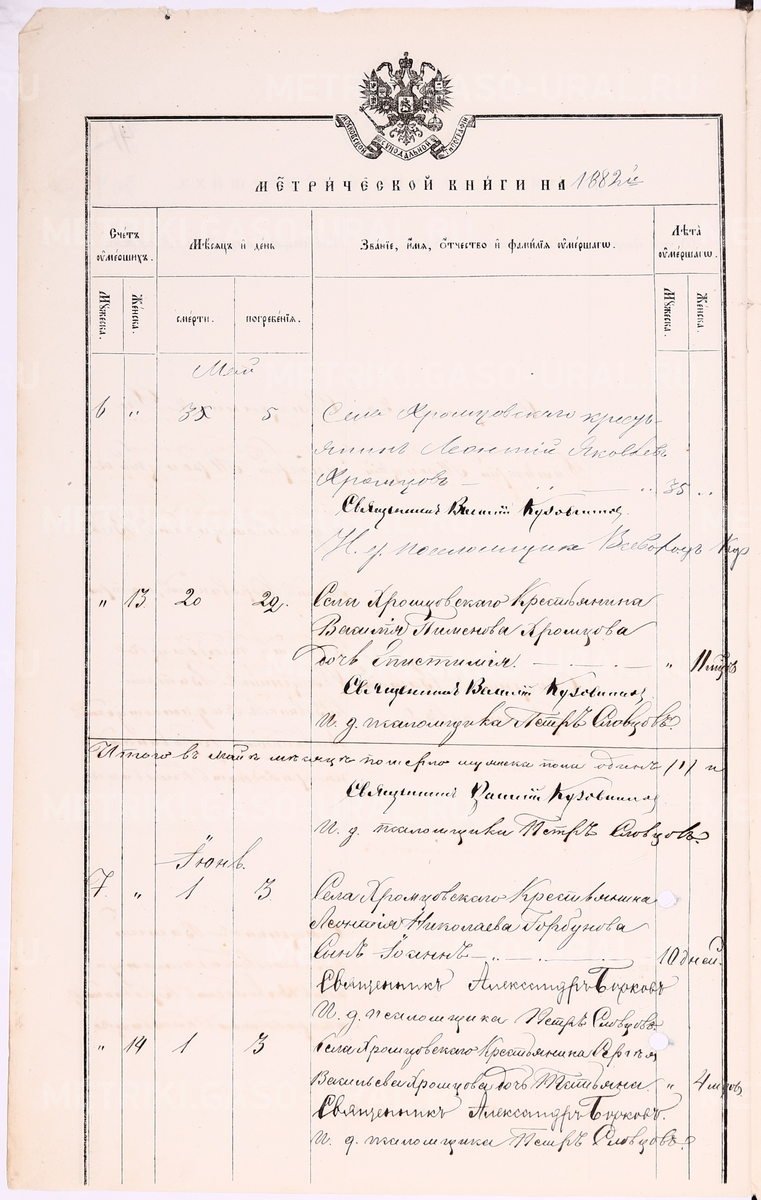 МЕТРИЧЕСКОЙ КНИГИ НА 1882й
Счетъ умершихъ. Мѣсяцъ и день Званіе, имя, отчество и фамилія умершаго. Лѣта умершаго.
Мужеска. Женска. смерти. погребенія. Мужеска. Женска.
Май
6 " 3 5 Села Хромцовскаго кресть-
янинъ Леонтій Яковлевъ
Хромцовъ — " — " 35 "
Священникъ Василій Кузовниковъ
И. д. псаломщика Всеволодъ
" 13 20 22. Села Хромцовскаго Крестьянина
Василія Пименова Хромцова
дочь Епистимія. — — — " 11 мцовъ
Священникъ Василій Кузовниковъ
И. д. псаломщика Петръ Словцовъ.
Итого въ маѣ мѣсяцѣ померло мужска пола одинъ (1) и
Священникъ Василій Кузовниковъ
И. д. псаломщика Петръ Словцовъ.
Іюнь.
7. " 1 3 Села Хромцовскаго Крестьянина
Леонтія Николаева Горбунова
Сынъ Іоаннъ — " — — — 10 дней.
Священникъ Александръ Борковъ
И. д. псаломщика Петръ Словцовъ.
" 14 1 3 Села Хромцовскаго Крестьянина Сергѣя
Васильева Хромцова дочь Татьяна " 4 мцовъ
Священникъ Александръ Борковъ.
И. д. псаломщика Петръ Словцовъ.